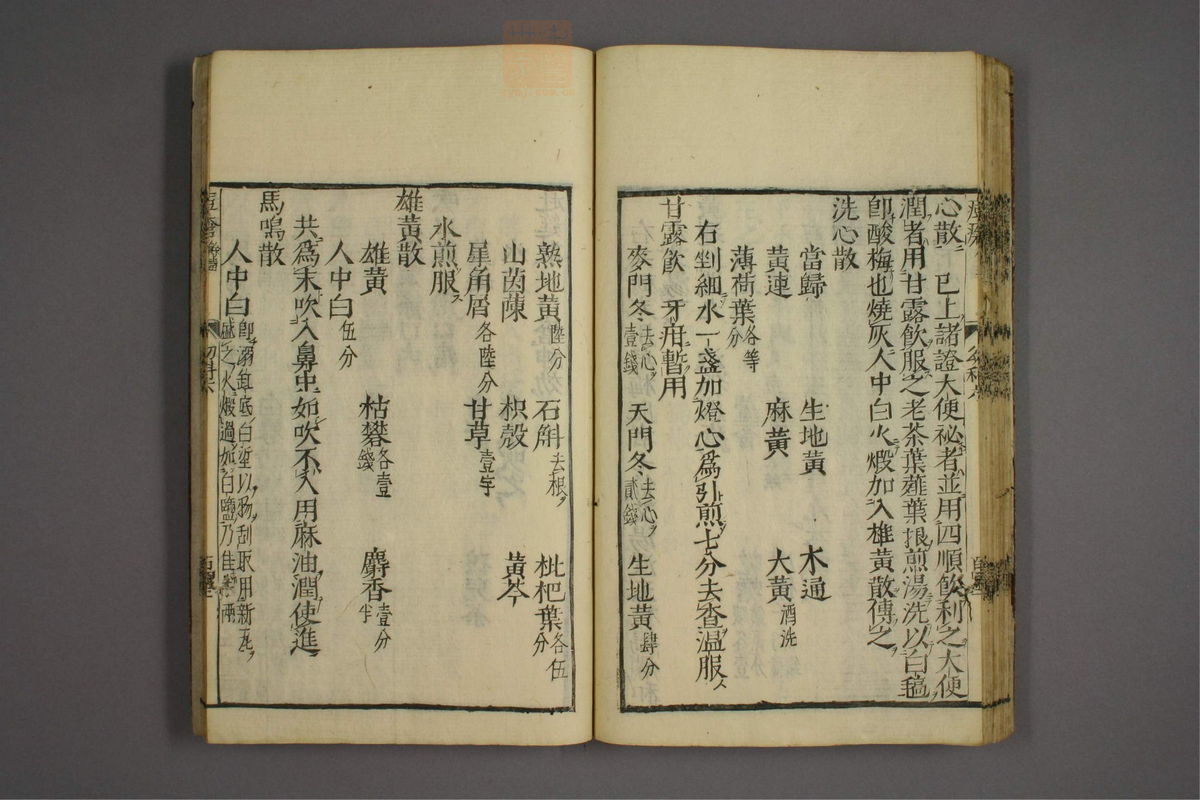 心散 已上諸證大便祕者並用四順飲利之大便
潤者用甘露飲服之老茶葉薤葉根煎湯洗以白
卽酸梅也燒灰人中白火煅加入雄黃散傅之
洗心散
當歸 生地黃 木通
黃連 麻黃 大黃酒洗
薄荷葉各等分
右剉細水一盞加燈心爲引煎七分去査温服
甘露飲 牙疳暫用
麥門冬去心壹錢 天門冬去心貳錢 生地黃肆分
熟地黃陸分 石斛去根 枇杷葉各伍分
山茵蔯 枳殼 黃芩
犀角屑各陸分 甘草壹字
水煎服
雄黃散
雄黃 枯礬各壹錢 麝香壹分半
人中白伍分
共爲末吹入鼻中如吹不入用麻油潤使進
馬鳴散
人中白卽溺缸底白垽以物刮取用新瓦
盛之火煅過如白鹽乃佳 兩